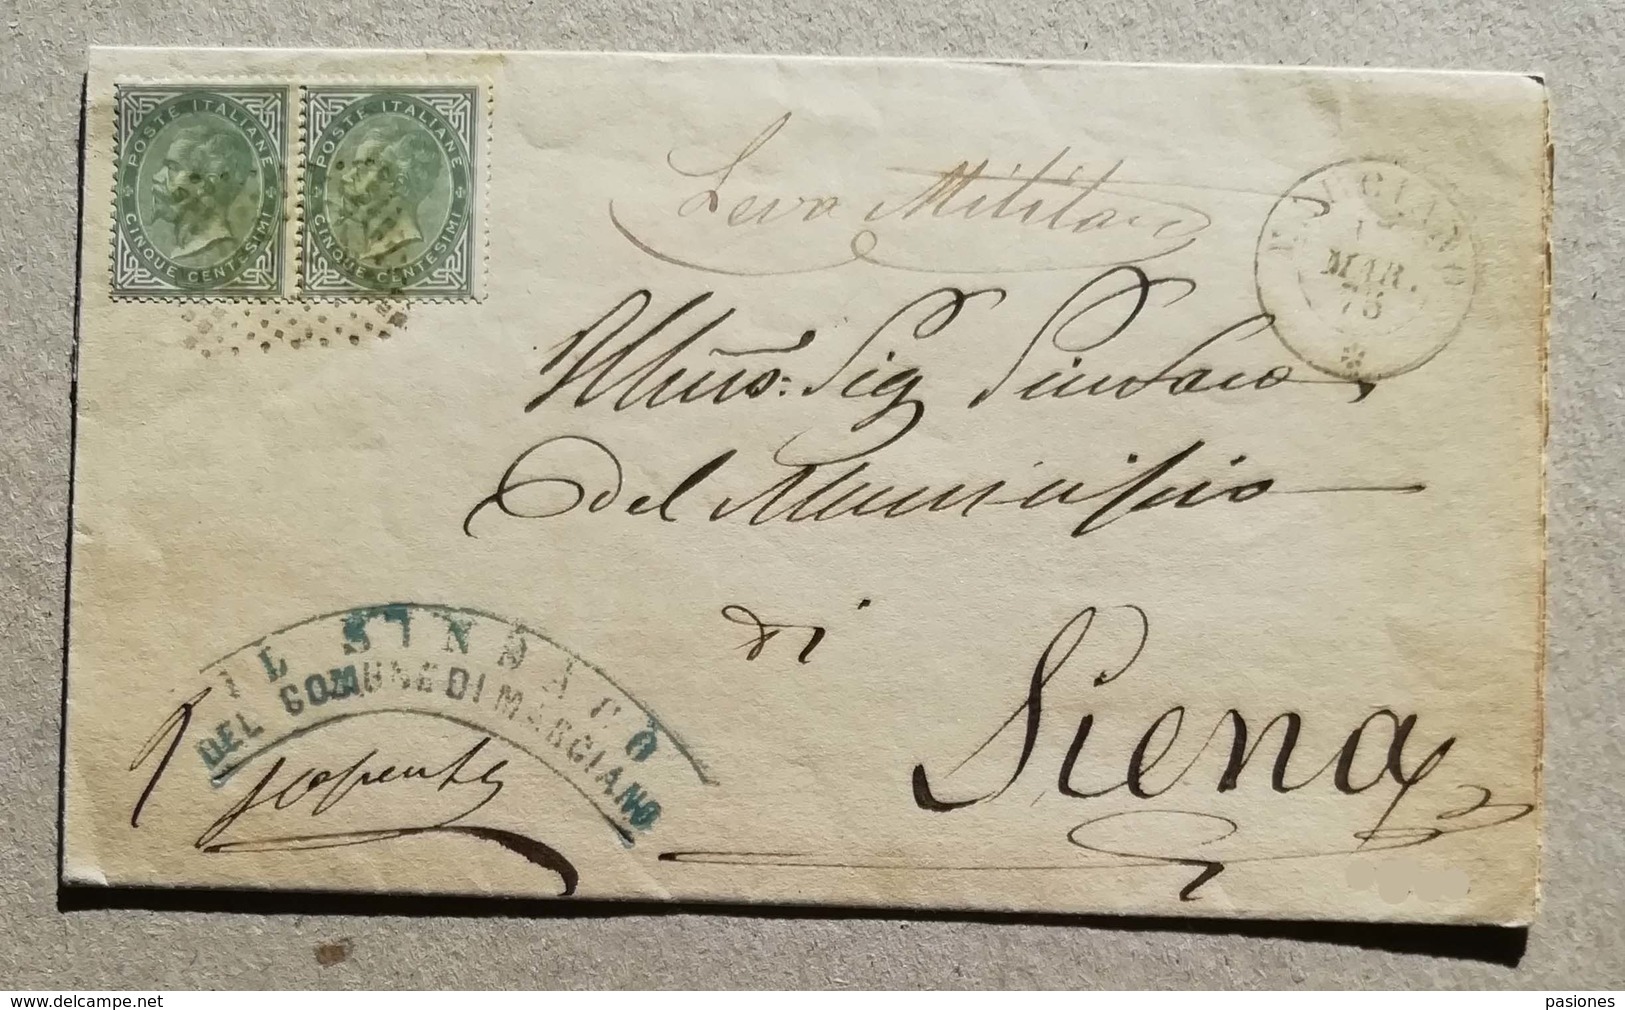 POSTE ITALIANE
CINQUE CENTESIMI
POSTE ITALIANE
CINQUE CENTESIMI
Leva Militare
MARCIANO
1
MAR.
78
Illmo: Sig Sindaco
del Municipio
di
Siena
IL SINDACO
DEL COMUNE DI MARCIANO
delcampe.net
pasiones